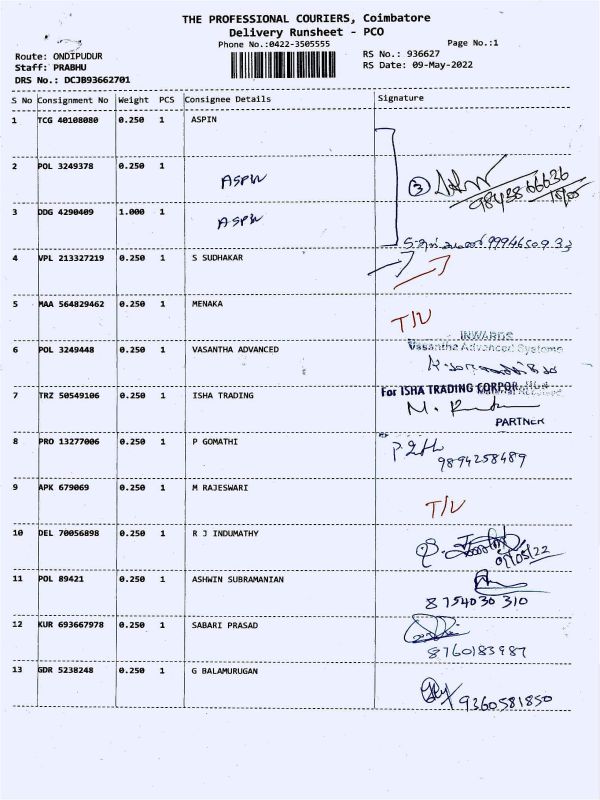 THE PROFESSIONAL COURIERS, Coimbatore
Delivery Runsheet - PCO
Phone No.:0422-3505555
Page No.:1
Route: ONDIPUDUR
RS No.: 936627
Staff: PRABHU
RS Date: 09-May-2022
DRS No.: DCJB93662701
S No Consignment No Weight PCS Consignee Details Signature
1 TCG 40108080 0.250 1 ASPIN
2 POL 3249378 0.250 1 ASPIN
3
3 DDG 4290409 1.000 1 ASPIN
4 VPL 213327219 0.250 1 S SUDHAKAR
5 MAA 564829462 0.250 1 MENAKA T/U
INWARDS
6 POL 3249448 0.250 1 VASANTHA ADVANCED Vasantha Advanced Systems
7 TRZ 50549106 0.250 1 ISHA TRADING For ISHA TRADING
PARTNER
8 PRO 13277006 0.250 1 P GOMATHI
9894258489
9 APK 679069 0.250 1 M RAJESWARI T/U
10 DEL 70056898 0.250 1 R J INDUMATHY
11 POL 89421 0.250 1 ASHWIN SUBRAMANIAN
8754030310
12 KUR 693667978 0.250 1 SABARI PRASAD
8760183987
13 GDR 5238248 0.250 1 G BALAMURUGAN
9360581850